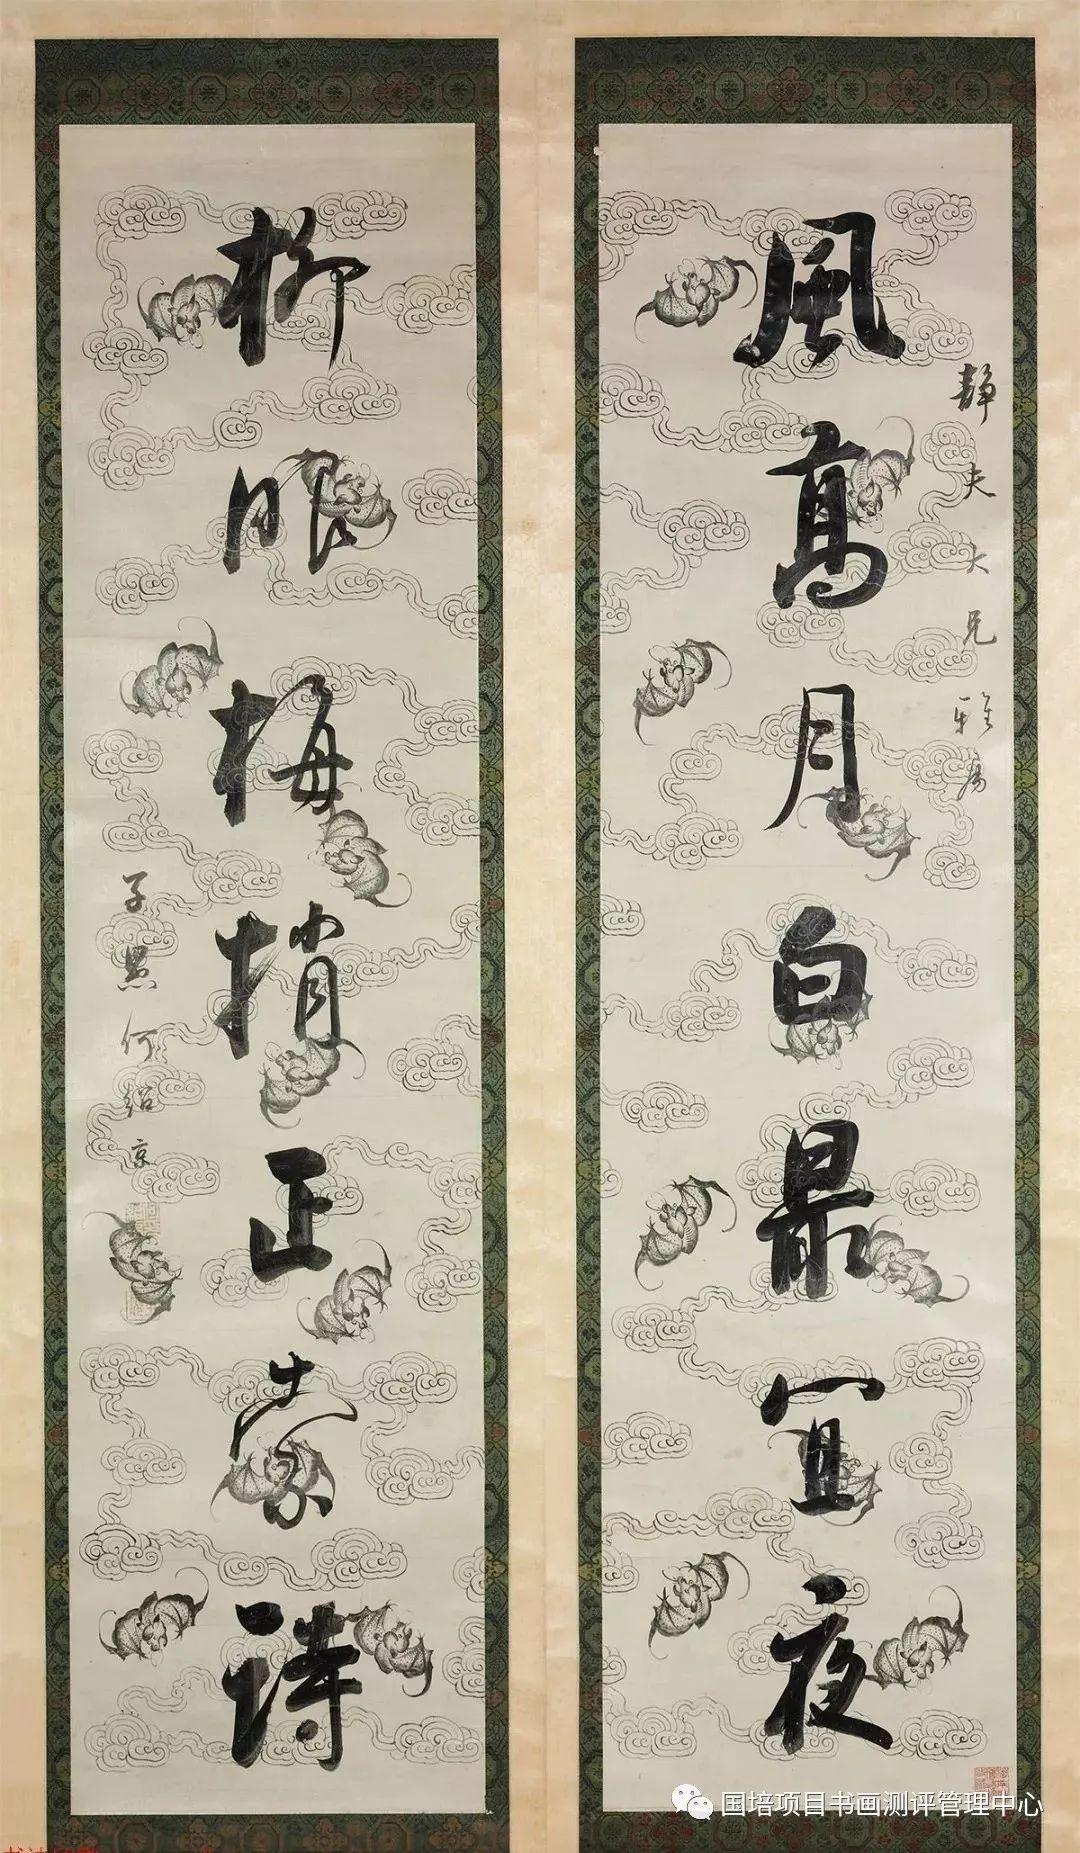 風高月白最宜夜
靜夫大兄雅屬
柳眼梅梢正索詩
子愚何紹京
国培项目书画测评管理中心